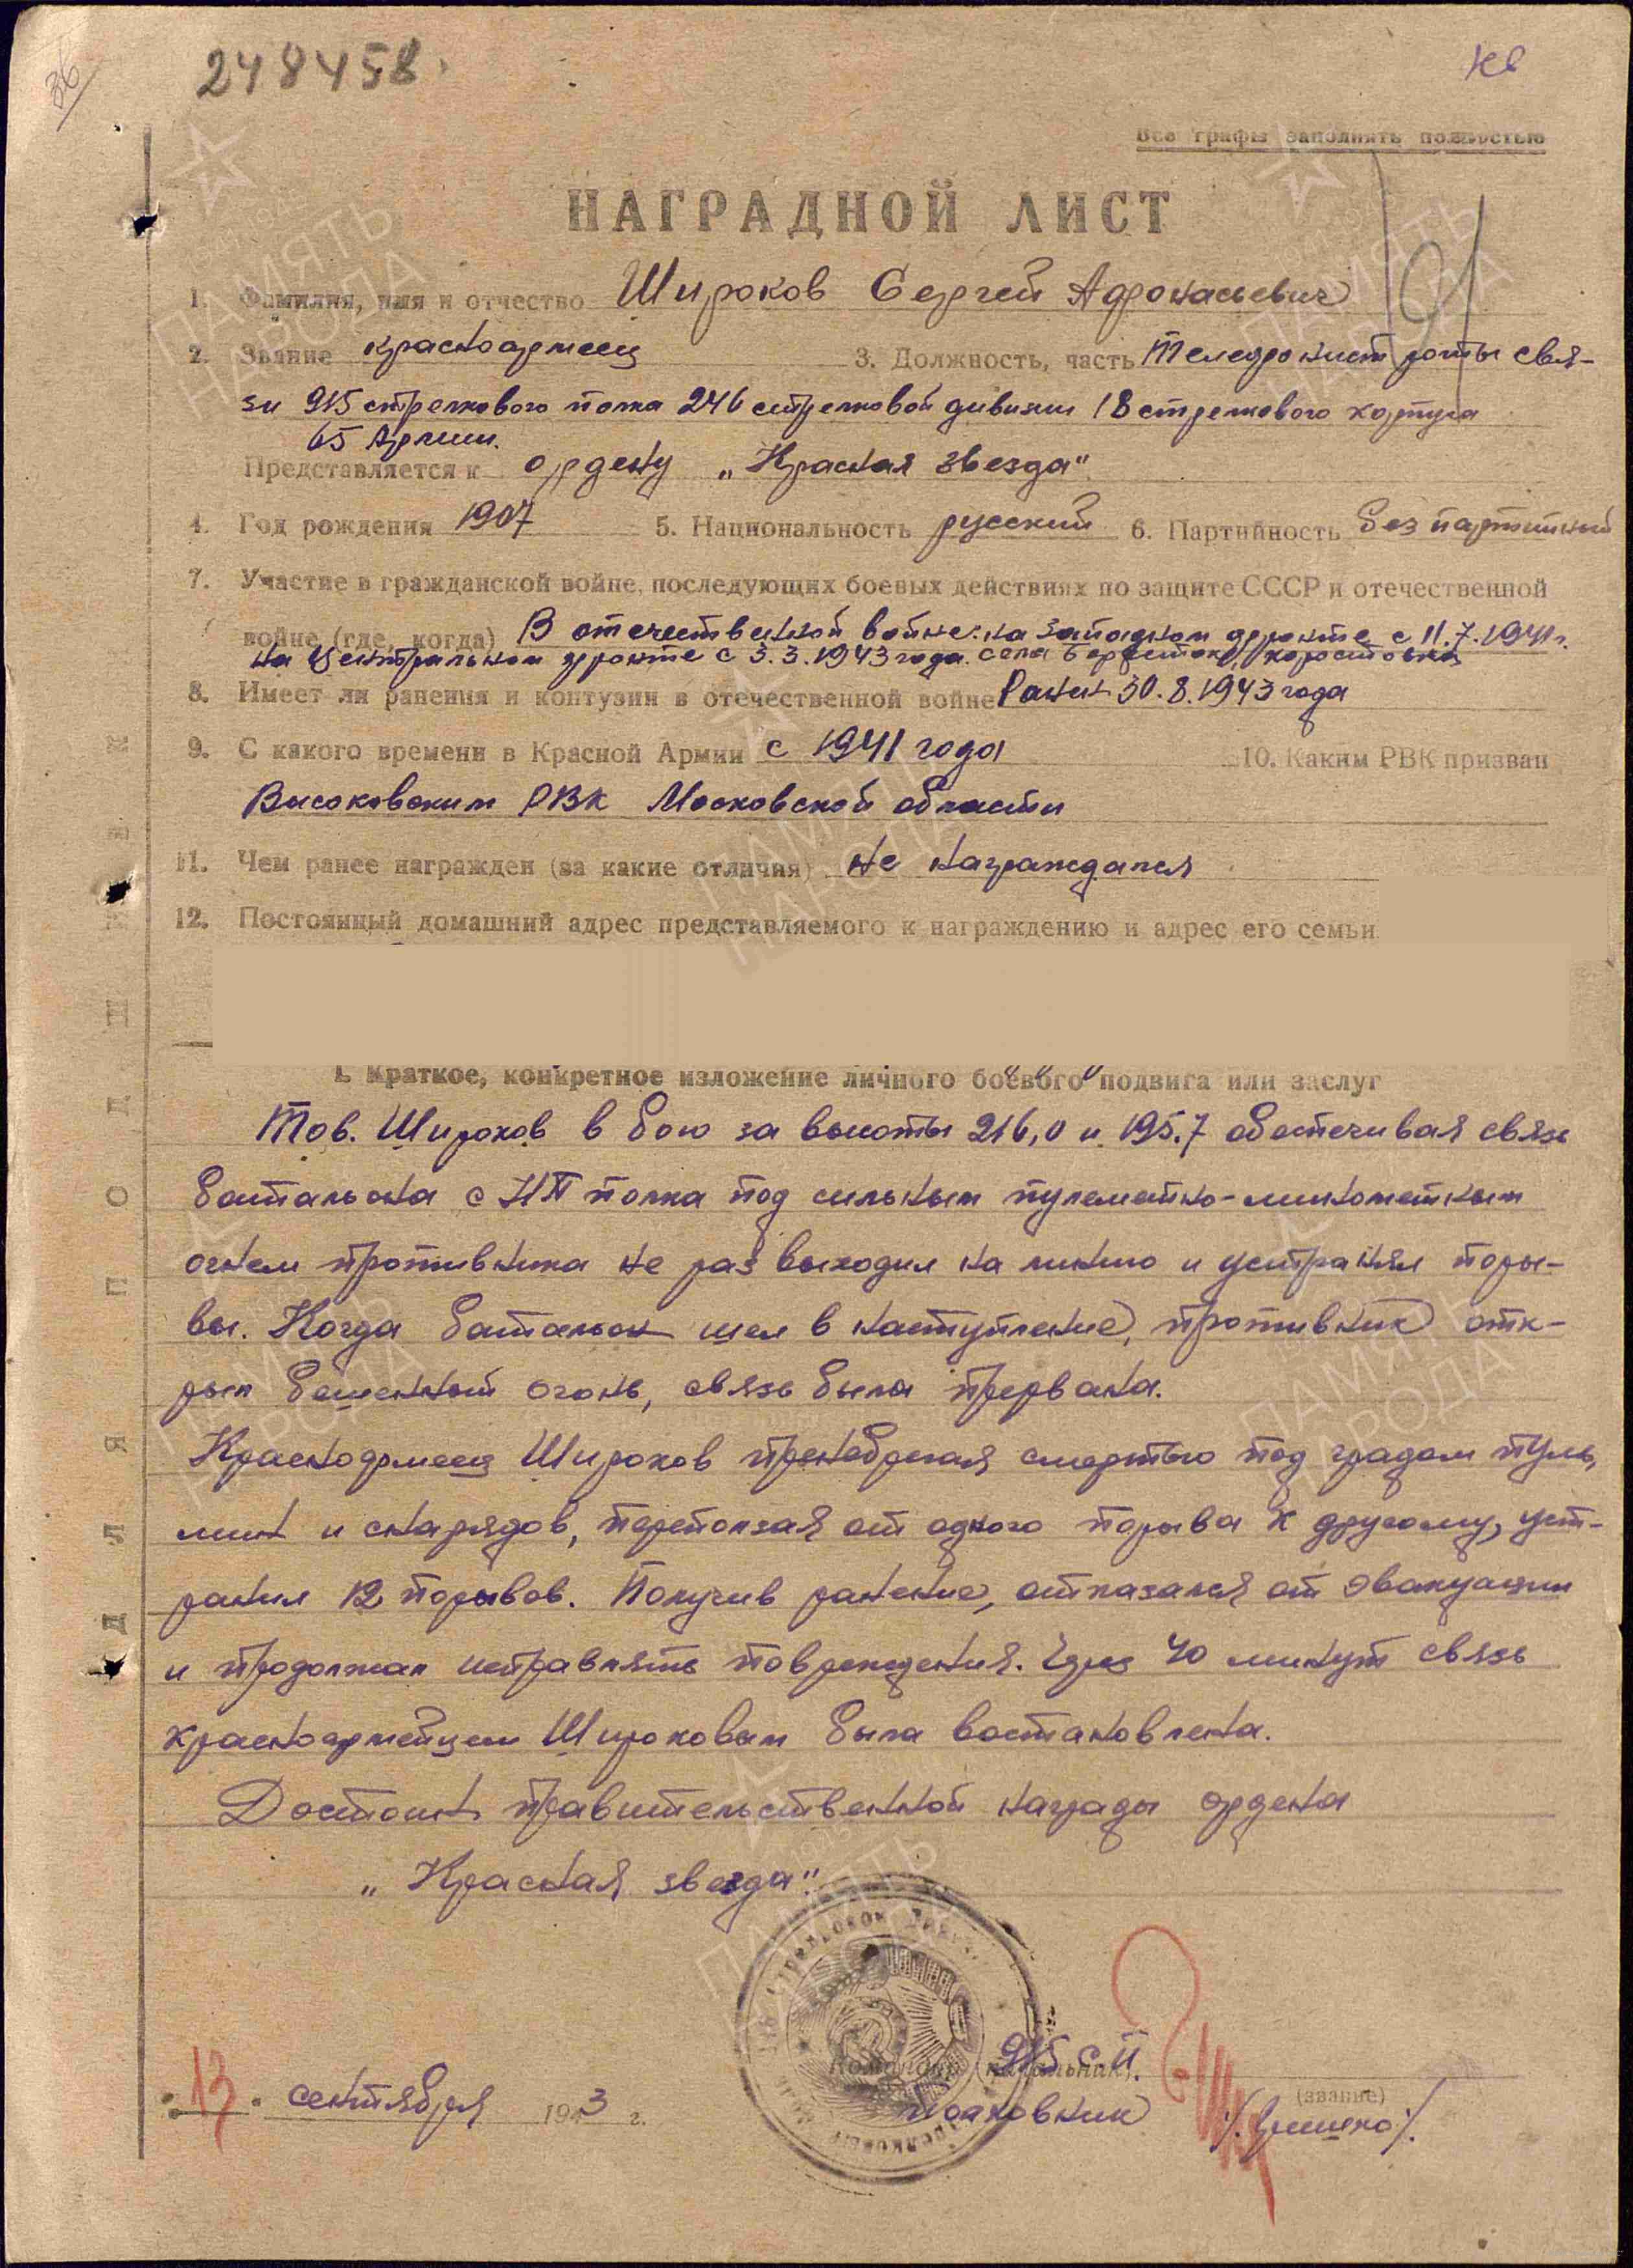 36
248458.
Все графы заполнять полностью
НАГРАДНОЙ ЛИСТ
1. Фамилия, имя и отчество Широков Сергей Афонасьевич
2. Звание красноармеец 3. Должность, часть Телефонист роты свя-
зи 915 стрелкового полка 246 стрелковой дивизии 18 стрелкового корпуса
65 Армии.
Представляется к ордену „Красная звезда"
4. Год рождения 1907 5. Национальность русский 6. Партийность без партийный
7. Участие в гражданской войне, последующих боевых действиях по защите СССР и отечественной
войне (где, когда) В отечественной войне: на Западном фронте с 11.7.1941 г.
на Центральном фронте с 3.3.1943 года. села
8. Имеет ли ранения и контузии в отечественной войне Ранен 30.8.1943 года
9. С какого времени в Красной Армии с 1941 года 10. Каким РВК призван
Высоковским РВК Московской области
11. Чем ранее награжден (за какие отличия) не награждался
12. Постоянный домашний адрес представляемого к награждению и адрес его семьи
I. Краткое, конкретное изложение личного боевого подвига или заслуг
Тов. Широков в бою за высоты 216,0 и 195.7 обеспечивая связь
батальона с НП полка под сильным пулеметно-минометным
огнем противника не раз выходил на линию и устранял поры-
вы. Когда батальон шел в наступление, противник отк-
рыл бешенный огонь, связь была прервана.
Красноармеец Широков пренебрегая смертью под градом пуль,
мин и снарядов, переползая от одного порыва к другому, уст-
ранил 12 порывов. Получив ранение, отказался от эвакуации
и продолжал исправлять повреждения. Через 40 минут связь
красноармейцем Широковым была востановлена.
Достоин правительственной награды ордена
„Красная звезда"
Командир (начальник) 915 СП
(звание)
полковник
13 сентября 1943 г.
ДЛЯ ПОДШИВКИ
ПАМЯТЬ
НАРОДА